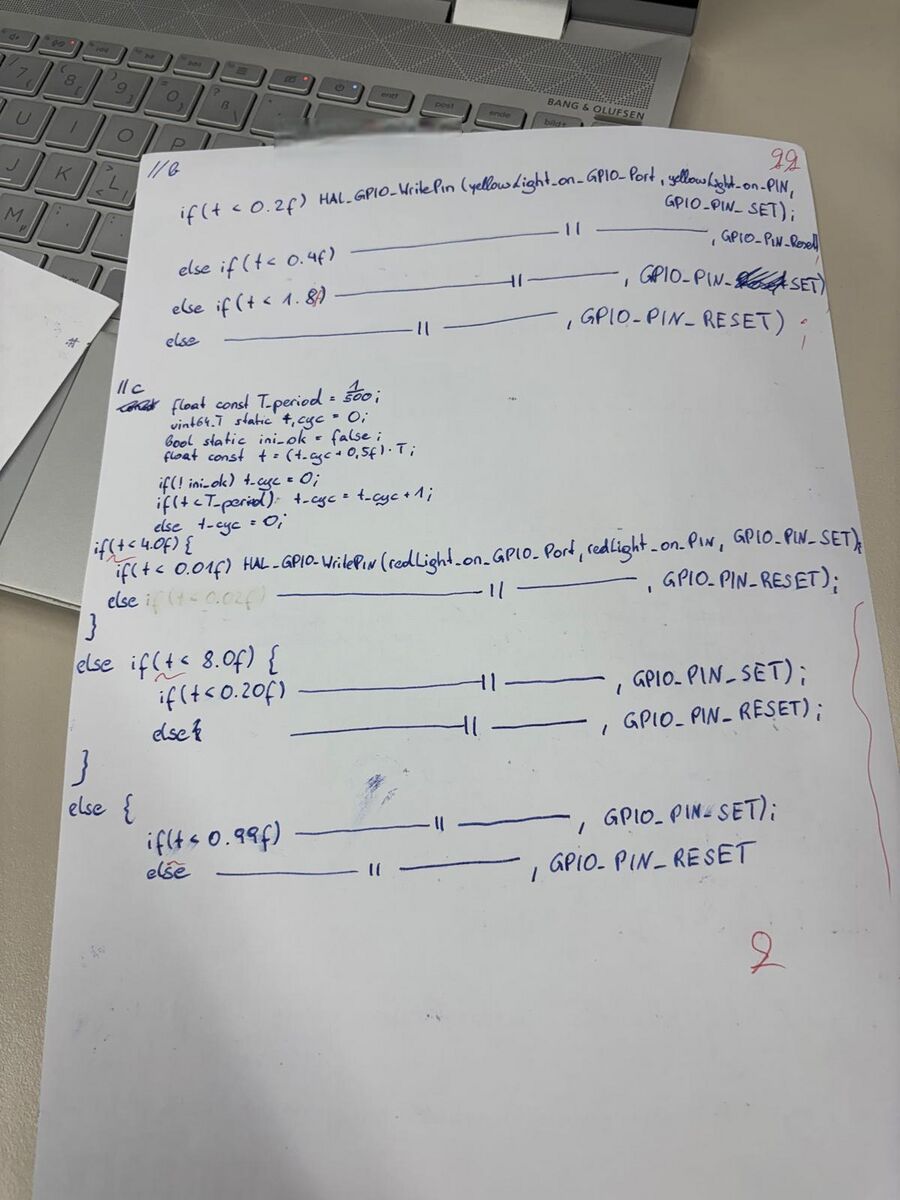 BANG & OLUFSEN
end
post
ende
bild
U I O P
J K L
M
//B
if(t < 0.2f) HAL_GPIO_WritePin (yellowLight_on_GPIO_Port, yellowLight_on_PIN,
GPIO_PIN_SET);
else if(t < 0.4f) ——— || ———, GPIO_PIN_Reset)
else if(t < 1.8f) ——— || ———, GPIO_PIN_SET)
else ——— || ———, GPIO_PIN_RESET);
//C
float const T_period = 1/500;
uint64_T static t_cyc = 0;
Bool static ini_ok = false;
float const t = (t_cyc + 0,5f)·T;
if(! ini_ok) t_cyc = 0;
if(t < T_period) t_cyc = t_cyc + 1;
else t_cyc = 0;
if(t < 4.0f) {
if(t < 0.01f) HAL_GPIO_WritePin(redLight_on_GPIO_Port, redLight_on_PIN, GPIO_PIN_SET);
else if(t < 0.02f) ——— || ———, GPIO_PIN_RESET);
}
else if(t < 8.0f) {
if(t < 0.20f) ——— || ———, GPIO_PIN_SET);
else{ ——— || ———, GPIO_PIN_RESET);
}
else {
if(t < 0.99f) ——— || ———, GPIO_PIN_SET);
else ——— || ———, GPIO_PIN_RESET
2